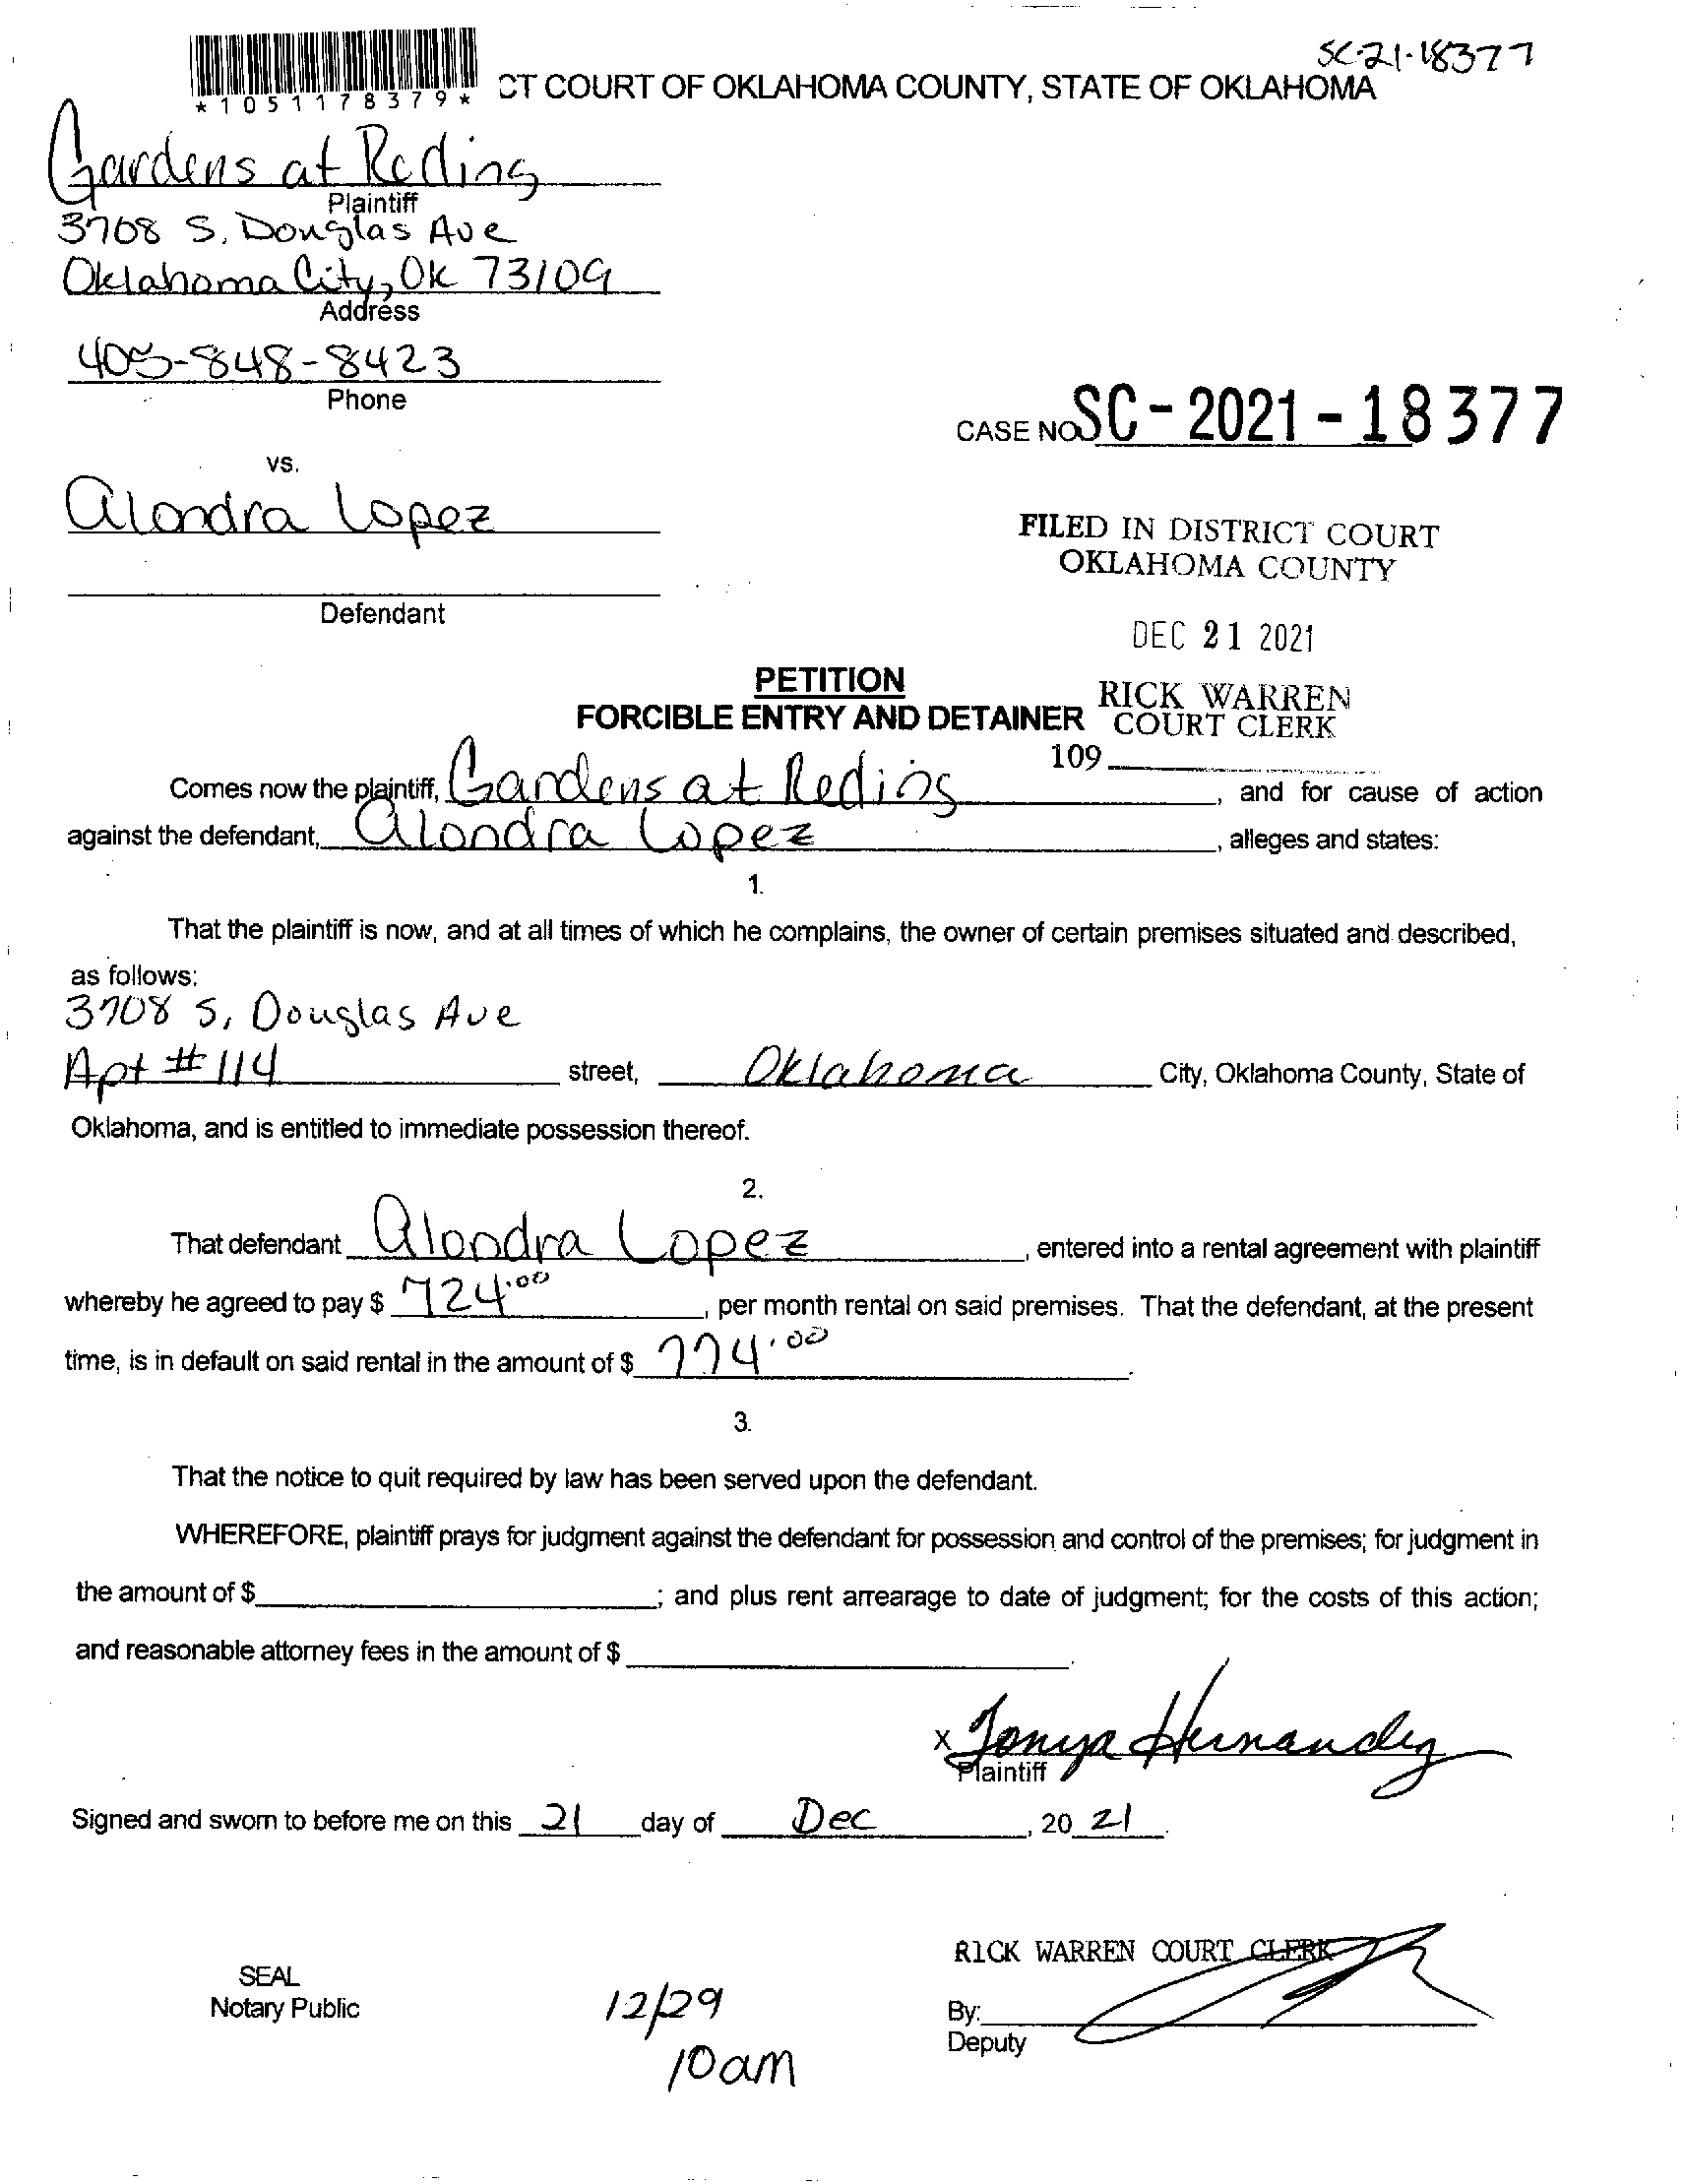 SC-21-18377
*1051178379* CT COURT OF OKLAHOMA COUNTY, STATE OF OKLAHOMA
Gardens at Reding
Plaintiff
3708 S. Douglas Ave
Oklahoma City, OK 73109
Address
405-848-8423
Phone
CASE NO SC-2021-18377
vs.
Alondra Lopez
FILED IN DISTRICT COURT
OKLAHOMA COUNTY
Defendant
DEC 21 2021
PETITION
RICK WARREN
FORCIBLE ENTRY AND DETAINER COURT CLERK
109
Comes now the plaintiff, Gardens at Reding, and for cause of action
against the defendant, Alondra Lopez, alleges and states:
1.
That the plaintiff is now, and at all times of which he complains, the owner of certain premises situated and described,
as follows:
3708 S, Douglas Ave
Apt #114 street, Oklahoma City, Oklahoma County, State of
Oklahoma, and is entitled to immediate possession thereof.
2.
That defendant Alondra Lopez, entered into a rental agreement with plaintiff
whereby he agreed to pay $ 724.00, per month rental on said premises. That the defendant, at the present
time, is in default on said rental in the amount of $ 774.00.
3.
That the notice to quit required by law has been served upon the defendant.
WHEREFORE, plaintiff prays for judgment against the defendant for possession and control of the premises; for judgment in
the amount of $ ; and plus rent arrearage to date of judgment; for the costs of this action;
and reasonable attorney fees in the amount of $ .
x Tonya Hernandez
Plaintiff
Signed and sworn to before me on this 21 day of Dec, 20 21.
RICK WARREN COURT CLERK
SEAL
Notary Public
12/29
By:
Deputy
10am